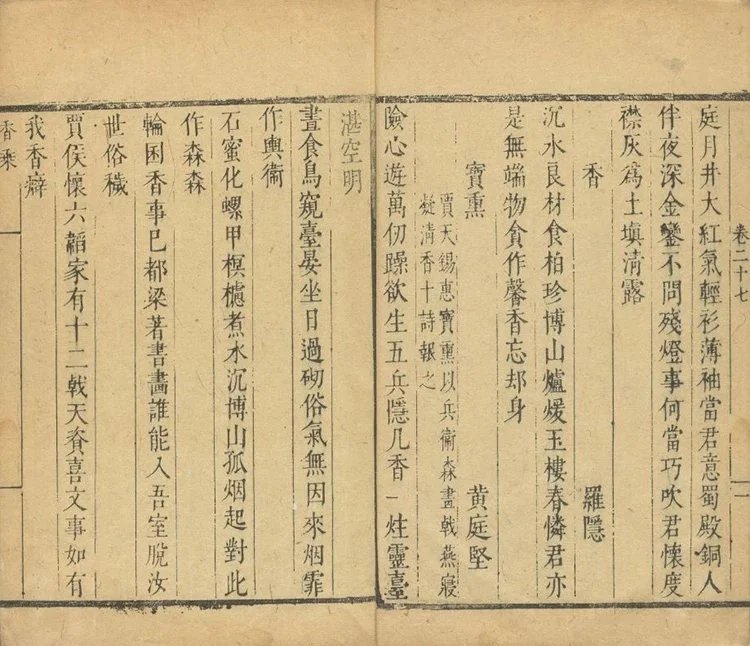 卷二十七
庭月井大紅氣輕衫薄袖當君意蜀殿銅人
伴夜深金鑾不問殘燈事何當巧吹君懷度
襟灰為土填清露
香 羅隱
沉水良材食柏珍博山爐煖玉樓春憐君亦
是無端物貪作馨香忘却身
寶熏 黄庭堅
賈天錫惠寶熏以兵衛森畫戟燕寢
凝清香十詩報之
險心遊萬仞躁欲生五兵隱几香一炷靈臺
湛空明
晝食鳥窺臺晏坐日過砌俗氣無因來烟霏
作輿衛
石蜜化螺甲榠樝煮水沉博山孤烟起對此
作森森
輪囷香事已都梁著書畫誰能入吾室脫汝
世俗穢
賈侯懷六韜家有十二戟天資喜文事如有
我香癖
香乘